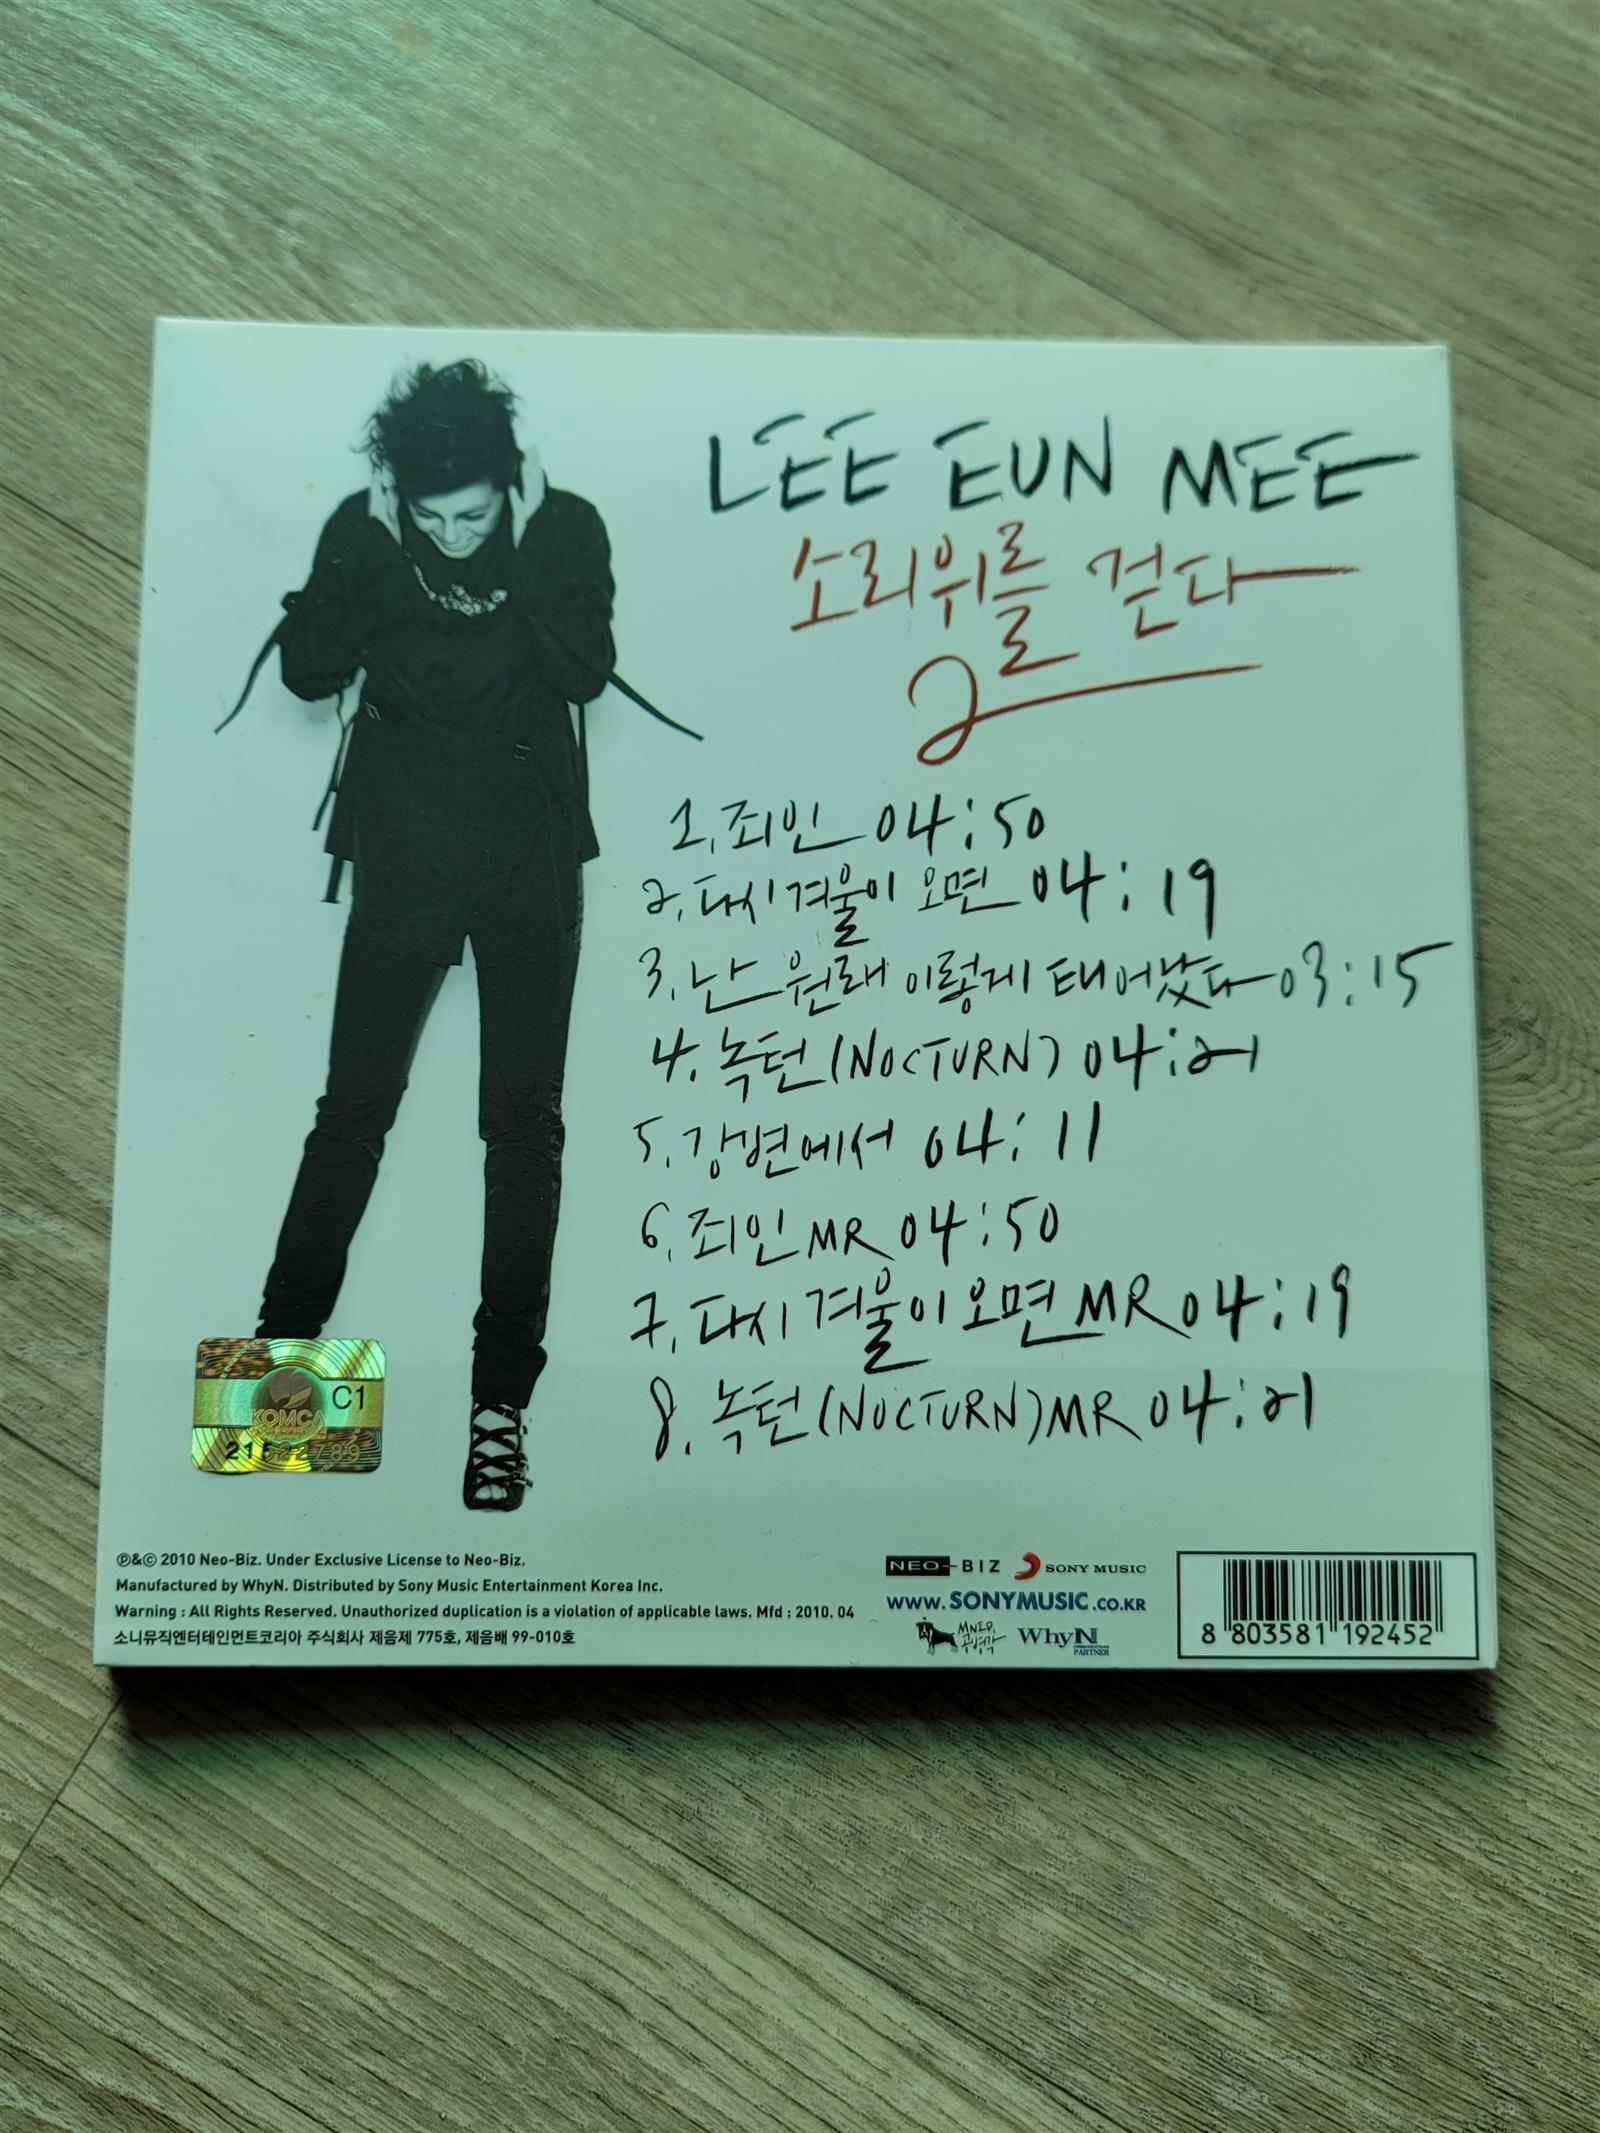 LEE EUN MEE
소리위를 걷다
2
1. 죄인 04:50
2. 다시 겨울이 오면 04:19
3. 난 원래 이렇게 태어났다 03:15
4. 녹턴 (NOCTURN) 04:21
5. 강변에서 04:11
6. 죄인 MR 04:50
7. 다시 겨울이 오면 MR 04:19
8. 녹턴 (NOCTURN) MR 04:21
C1
KOMCA
21522789
℗&© 2010 Neo-Biz. Under Exclusive License to Neo-Biz.
Manufactured by WhyN. Distributed by Sony Music Entertainment Korea Inc.
Warning : All Rights Reserved. Unauthorized duplication is a violation of applicable laws. Mfd : 2010. 04
소니뮤직엔터테인먼트코리아 주식회사 제음제 775호, 제음배 99-010호
NEO-BIZ SONY MUSIC
www.SONYMUSIC.CO.KR
WhyN
PARTNER
8 803581 192452